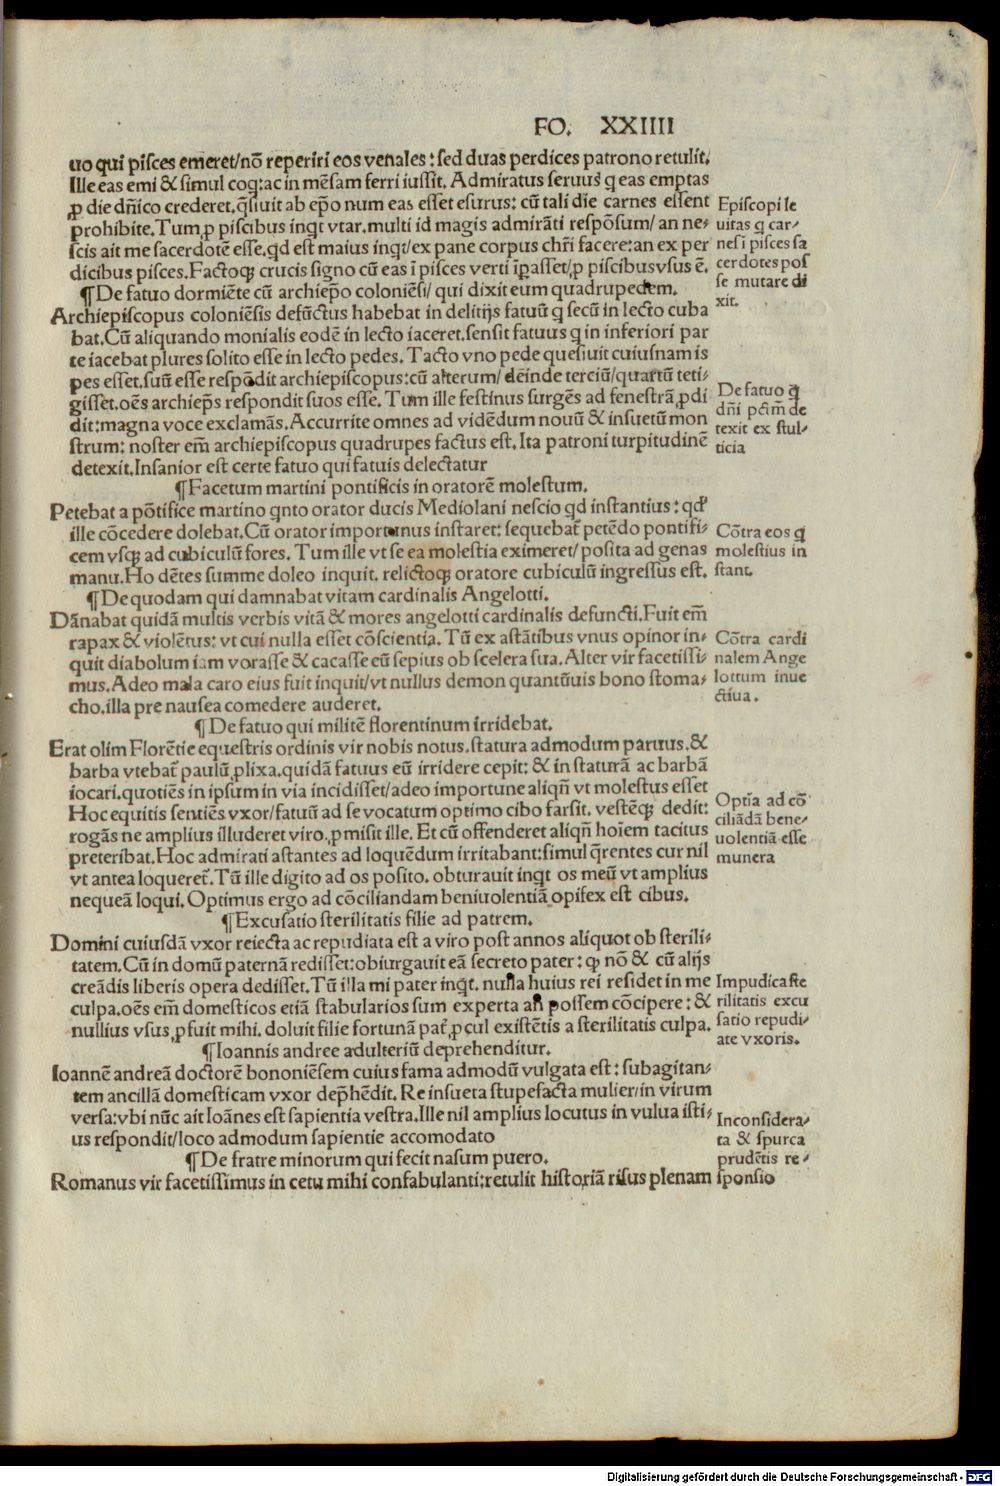 FO. XXIIII
uo qui pisces emeret/nō reperiri eos venales: sed duas perdices patrono retulit.
Ille eas emi & simul coq:ac in mēsam ferri iussit. Admiratus seruus q eas emptas
ꝓ die dn̄ico crederet.q̄siuit ab ep̄o num eas esset esurus: cū tali die carnes essent
prohibite. Tum,ꝓ piscibus inqt vtar.multi id magis admirāti respōsum/ an ne⸗
scis ait me sacerdotē esse.qd est maius inqt/ex pane corpus chr̄i facere:an ex per
dicibus pisces. Factoqꝫ crucis signo cū eas ī pisces verti īꝑasset/,ꝓ piscibus vsus ē.
¶De fatuo dormiēte cū archiep̄o coloniēsi/ qui dixit eum quadrupedem.
Archiepiscopus coloniēsis defūctus habebat in delitijs fatuū q secū in lecto cuba
bat. Cū aliquando monialis eodē in lecto iaceret.sensit fatuus q in inferiori par
te iacebat plures solito esse in lecto pedes. Tacto vno pede quesiuit cuiusnam is
pes esset.suū esse respōdit archiepiscopus:cū alterum/ deinde terciū/quartū teti⸗
gisset.oēs archiep̄s respondit suos esse. Tum ille festinus surgēs ad fenestrā,ꝓdi
dit:magna voce exclamās. Accurrite omnes ad vidēdum nouū & insuetū mon
strum: noster em̄ archiepiscopus quadrupes factus est. Ita patroni turpitudinē
detexit. Insanior est certe fatuo qui fatuis delectatur
¶Facetum martini pontificis in oratorē molestum.
Petebat a pōtifice martino qnto orator ducis Mediolani nescio qd instantius: qd'
ille cōcedere dolebat. Cū orator importunus instaret: sequebat̄ petēdo pontifi⸗
cem vsqꝫ ad cubiculū fores. Tum ille vt se ea molestia eximeret/ posita ad genas
manu. Ho dētes summe doleo inquit. relictoqꝫ oratore cubiculū ingressus est.
¶De quodam qui damnabat vitam cardinalis Angelotti.
Dānabat quidā multis verbis vitā & mores angelotti cardinalis defuncti. Fuit em̄
rapax & violētus: vt cui nulla esset cōscientia. Tū ex astātibus vnus opinor in⸗
quit diabolum iam vorasse & cacasse eū sepius ob scelera sua. Alter vir facetissi⸗
mus. Adeo mala caro eius fuit inquit/vt nullus demon quantūuis bono stoma⸗
cho.illa pre nausea comedere auderet.
¶De fatuo qui militē florentinum irridebat.
Erat olim Florētie equestris ordinis vir nobis notus.statura admodum paruus.&
barba vtebat̄ paulū,ꝓlixa.quidā fatuus eū irridere cepit: & in staturā ac barbā
iocari.quotiēs in ipsum in via incidisset/adeo importune aliqn̄ vt molestus esset
Hoc equitis sentiēs vxor/fatuū ad se vocatum optimo cibo farsit. vestēqꝫ dedit:
rogās ne amplius illuderet viro,ꝓmisit ille. Et cū offenderet aliqn̄ hoiem tacitus
preteribat. Hoc admirati astantes ad loquēdum irritabant:simul q̄rentes cur nil
vt antea loqueret̄. Tū ille digito ad os posito. obturauit inqt os meū vt amplius
nequeā loqui. Optimus ergo ad cōciliandam beniuolentiā opifex est cibus.
¶Excusatio sterilitatis filie ad patrem.
Domini cuiusdā vxor reiecta ac repudiata est a viro post annos aliquot ob sterili⸗
tatem. Cū in domū paternā redisset:obiurgauit eā secreto pater: ꝙ nō & cū alijs
creādis liberis opera dedisset. Tū illa mi pater inqt. nulla huius rei residet in me
culpa.oēs em̄ domesticos etiā stabularios sum experta an possem cōcipere: &
nullius vsus,ꝓfuit mihi. doluit filie fortunā pat̄,ꝓcul existētis a sterilitatis culpa.
¶Ioannis andree adulteriū deprehenditur.
Ioannē andreā doctorē bononiēsem cuius fama admodū vulgata est: subagitan⸗
tem ancillā domesticam vxor dep̄hēdit. Re insueta stupefacta mulier/in virum
versa:vbi nūc ait Ioānes est sapientia vestra. Ille nil amplius locutus in vulua isti⸗
us respondit/loco admodum sapientie accomodato
¶De fratre minorum qui fecit nasum puero.
Romanus vir facetissimus in cetu mihi confabulanti:retulit historiā risus plenam
Episcopi le
uitas q car⸗
nes ī pisces sa
cerdotes pos
se mutare di
xit.
De fatuo q̄
dn̄i pcīm de
texit ex stul⸗
ticia
Cōtra eos q
molestius in
stant.
Cōtra cardi
nalem Ange
lottum inue
ctiua.
Optīa ad cō
ciliādā bene⸗
uolentiā esse
munera
Impudica ste
rilitatis excu
satio repudi⸗
ate vxoris.
Inconsidera⸗
ta & spurca
prudētis re⸗
sponsio
Digitalisierung gefördert durch die Deutsche Forschungsgemeinschaft - DFG